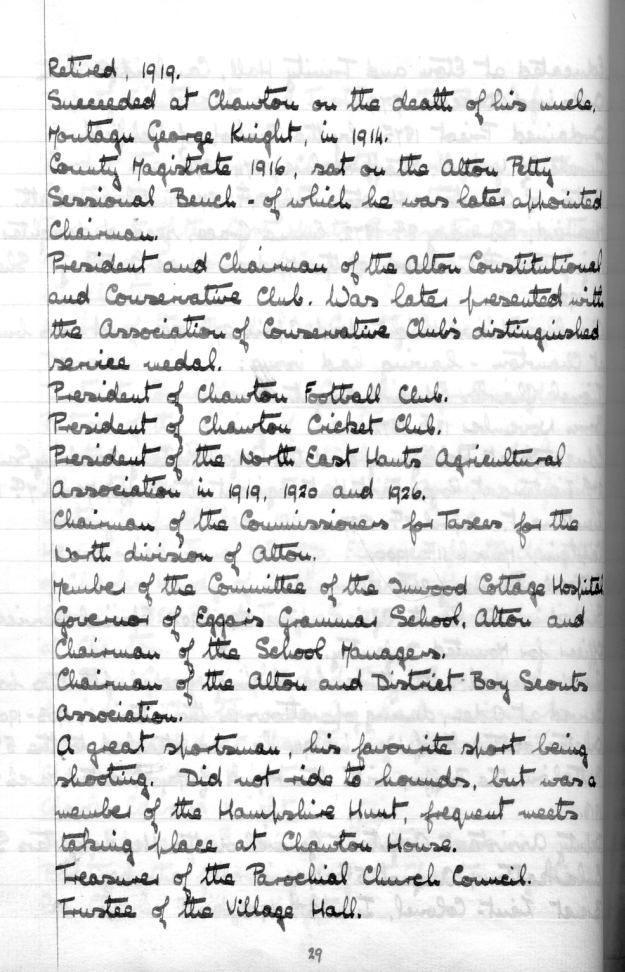 Retired, 1919.
Succeeded at Chawton on the death of his uncle,
Montagu George Knight, in 1914.
County Magistrate 1916, sat on the Alton Petty
Sessional Bench - of which he was later appointed
Chairman.
President and Chairman of the Alton Constitutional
and Conservative Club. Was later presented with
the Association of Conservative Club's distinguished
service medal.
President of Chawton Football Club.
President of Chawton Cricket Club.
President of the North East Hants Agricultural
Association in 1919, 1920 and 1926.
Chairman of the Commissioners for Taxes for the
North division of Alton.
Member of the Committee of the Inwood Cottage Hospital
Governor of Eggar's Grammar School, Alton and
Chairman of the School Managers.
Chairman of the Alton and District Boy Scouts
Association.
A great sportsman, his favourite sport being
shooting. Did not ride to hounds, but was a
member of the Hampshire Hunt, frequent meets
taking place at Chawton House.
Treasurer of the Parochial Church Council.
Trustee of the Village Hall.
29